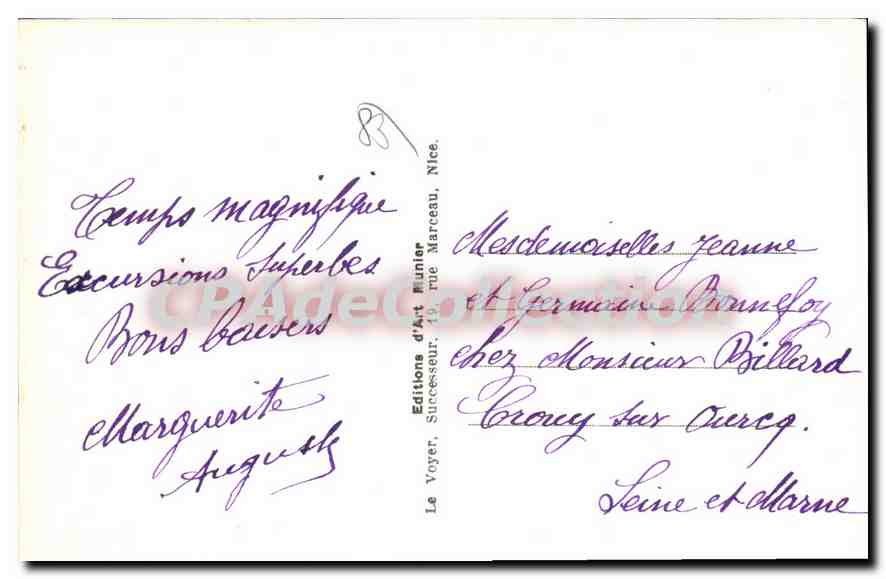 83
Temps magnifique
Excursions superbes
Bons baisers
Marguerite
Auguste
Editions d'Art Munier
Le Voyer, Successeur, 19, rue Marceau, Nice.
Mesdemoiselles Jeanne
et Germaine Bonnefoy
chez Monsieur Billard
Crouy sur Ourcq.
Seine et Marne
CPAdeCollection